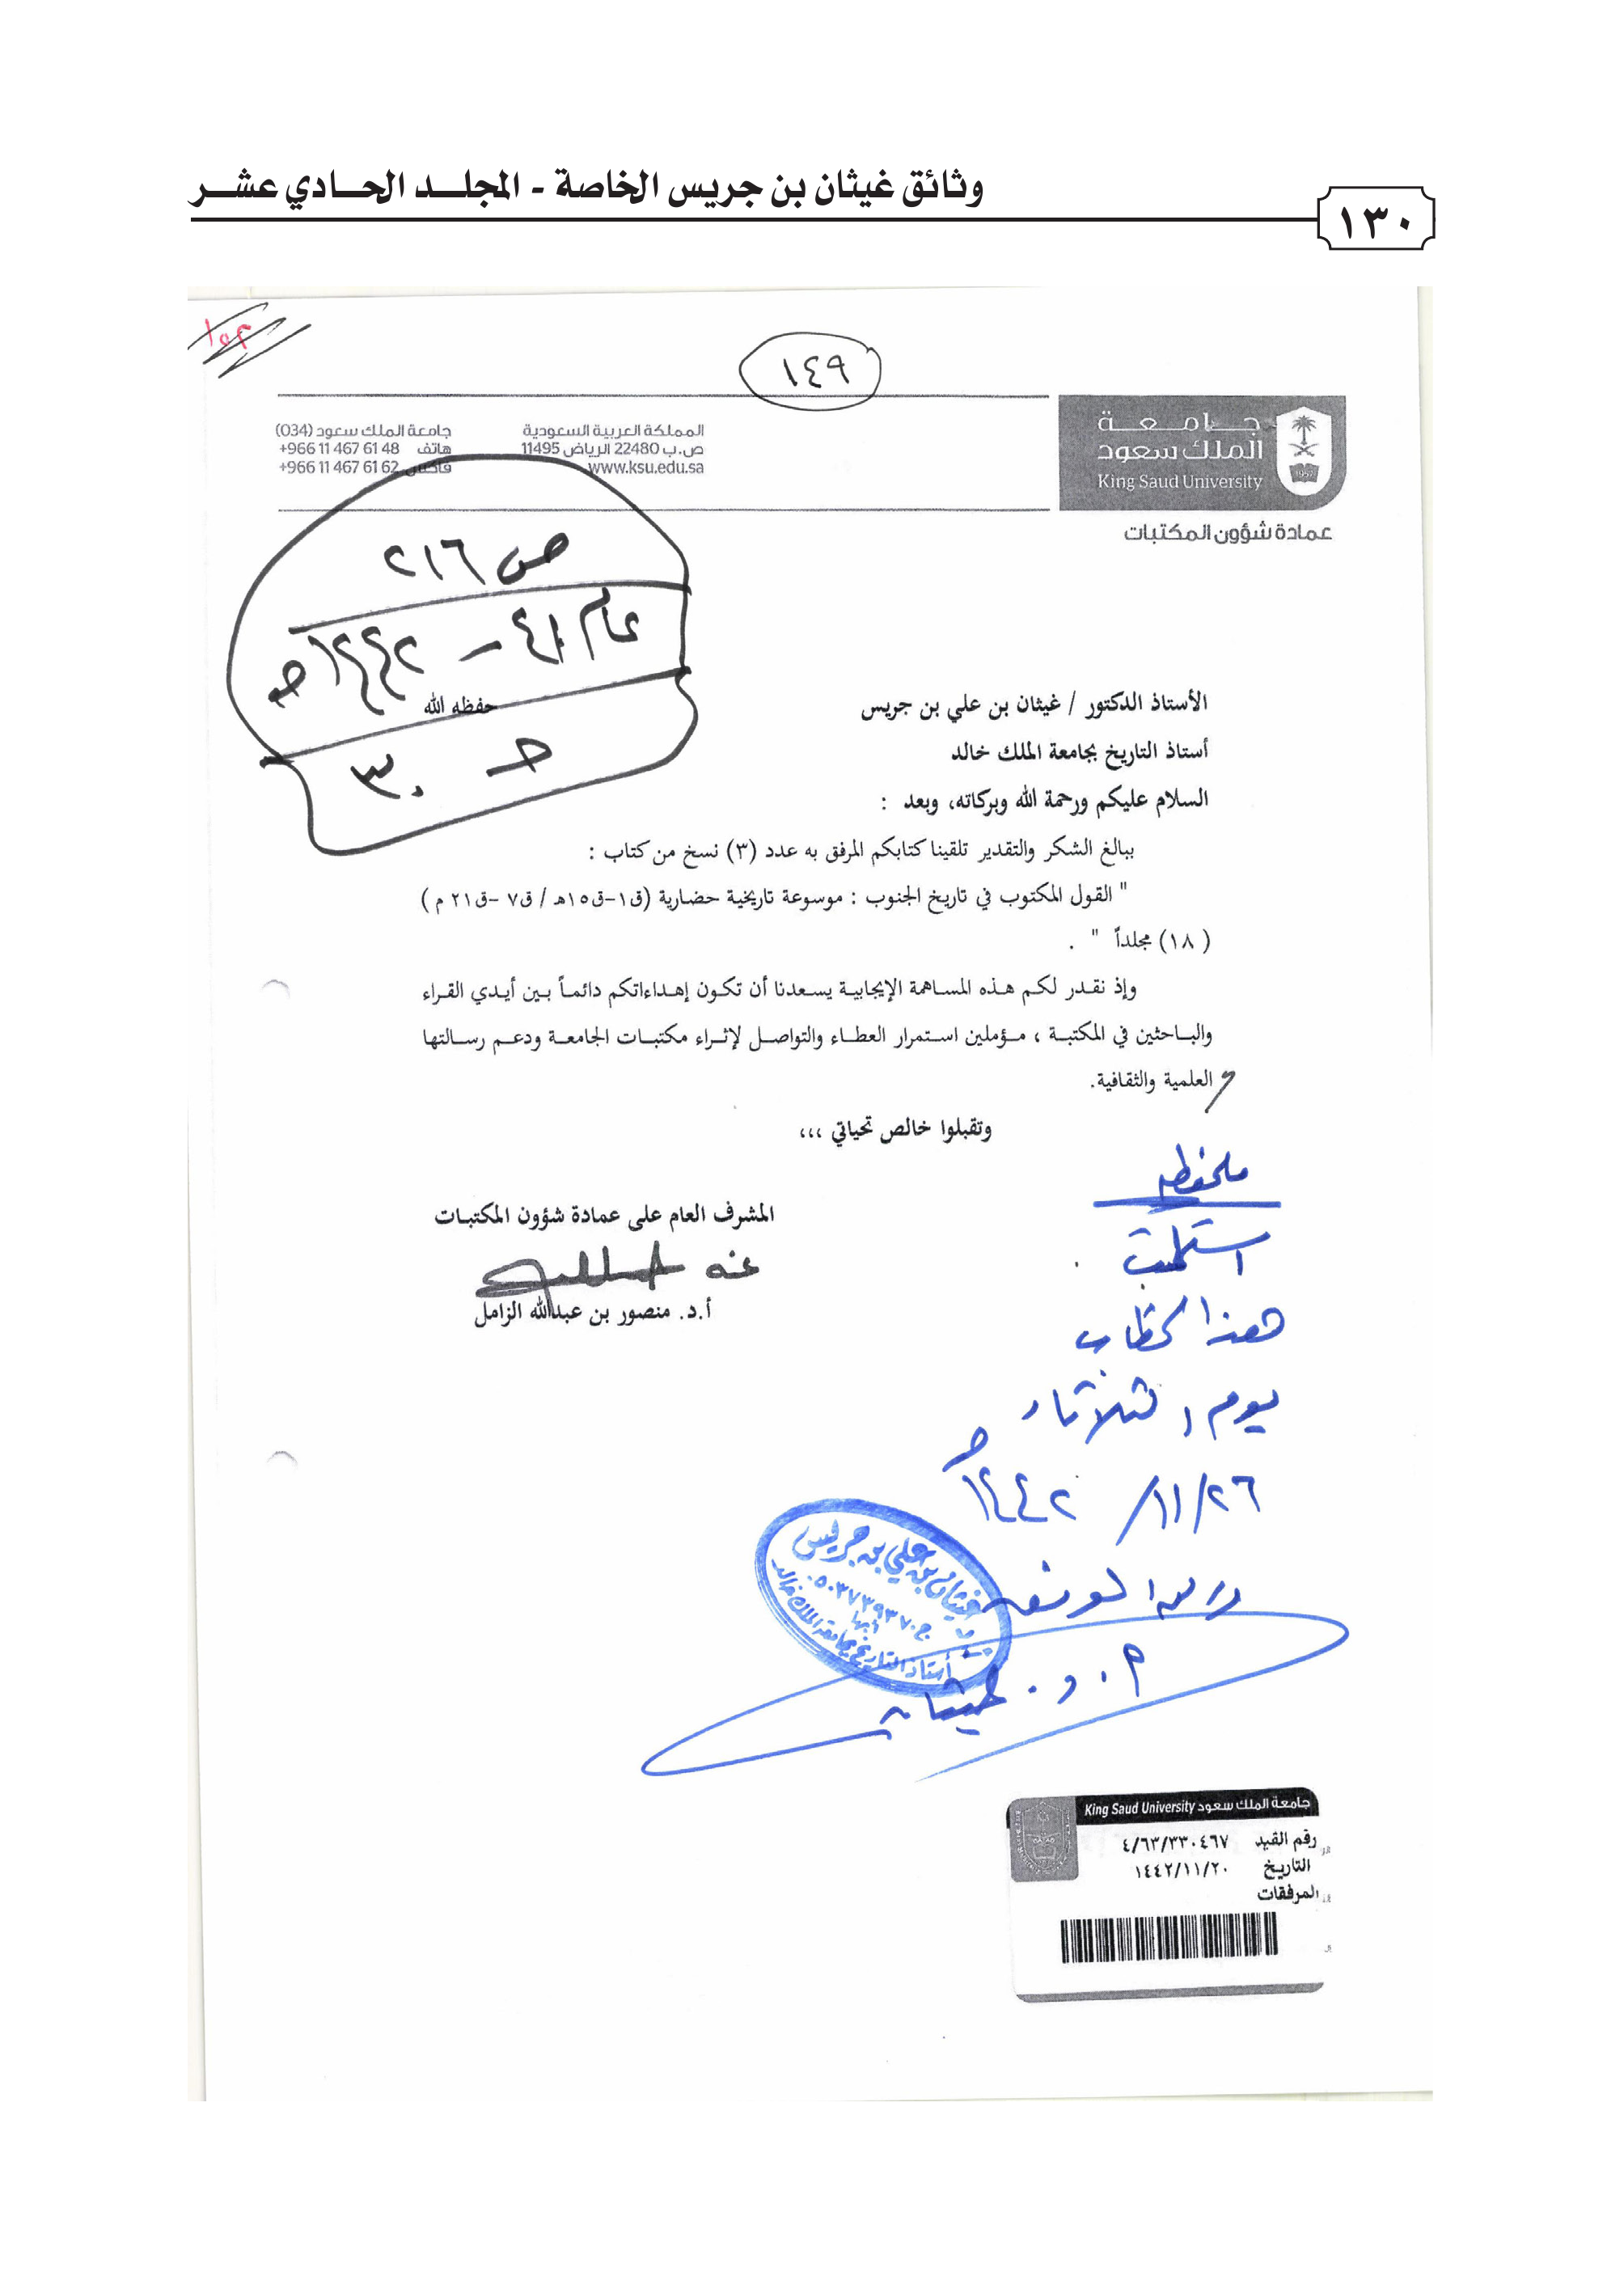 وثائق غيثان بن جريس الخاصة - المجلد الحادي عشر
١٣٠
١٥٢
١٤٩
جامعة
الملك سعود
King Saud University
1957
عمادة شؤون المكتبات
المملكة العربية السعودية
ص.ب 22480 الرياض 11495
www.ksu.edu.sa
جامعة الملك سعود (034)
هاتف +966 11 467 61 48
فاكس +966 11 467 61 62
ص ٢١٦
عام ٤١ - ١٤٤٢هـ
حـ ٣٠
الأستاذ الدكتور / غيثان بن علي بن جريس حفظه الله
أستاذ التاريخ بجامعة الملك خالد
السلام عليكم ورحمة الله وبركاته، وبعد :
ببالغ الشكر والتقدير تلقينا كتابكم المرفق به عدد (٣) نسخ من كتاب :
" القول المكتوب في تاريخ الجنوب : موسوعة تاريخية حضارية (ق١-ق١٥هـ / ق٧ -ق٢١ م )
( ١٨) مجلداً " .
وإذ نقدر لكم هذه المساهمة الإيجابية يسعدنا أن تكون إهداءاتكم دائماً بين أيدي القراء
والباحثين في المكتبة ، مؤملين استمرار العطاء والتواصل لإثراء مكتبات الجامعة ودعم رسالتها
العلمية والثقافية.
وتقبلوا خالص تحياتي ،،،
المشرف العام على عمادة شؤون المكتبات
عنه
أ.د. منصور بن عبدالله الزامل
ملحظه
استلمت
هذا الخطاب
يوم الثلاثاء
٢٦/١١/ ١٤٤٢هـ
والله الموفق
أ . د . غيثان
غيثان بن علي بن جريس
ج.٠٥٠٣٧٣٩٣٧٠
أبها
أستاذ التاريخ بجامعة الملك خالد
جامعة الملك سعود King Saud University
رقم القيد ٤/٦٣/٣٣٠٤٦٧
التاريخ ١٤٤٢/١١/٢٠
المرفقات